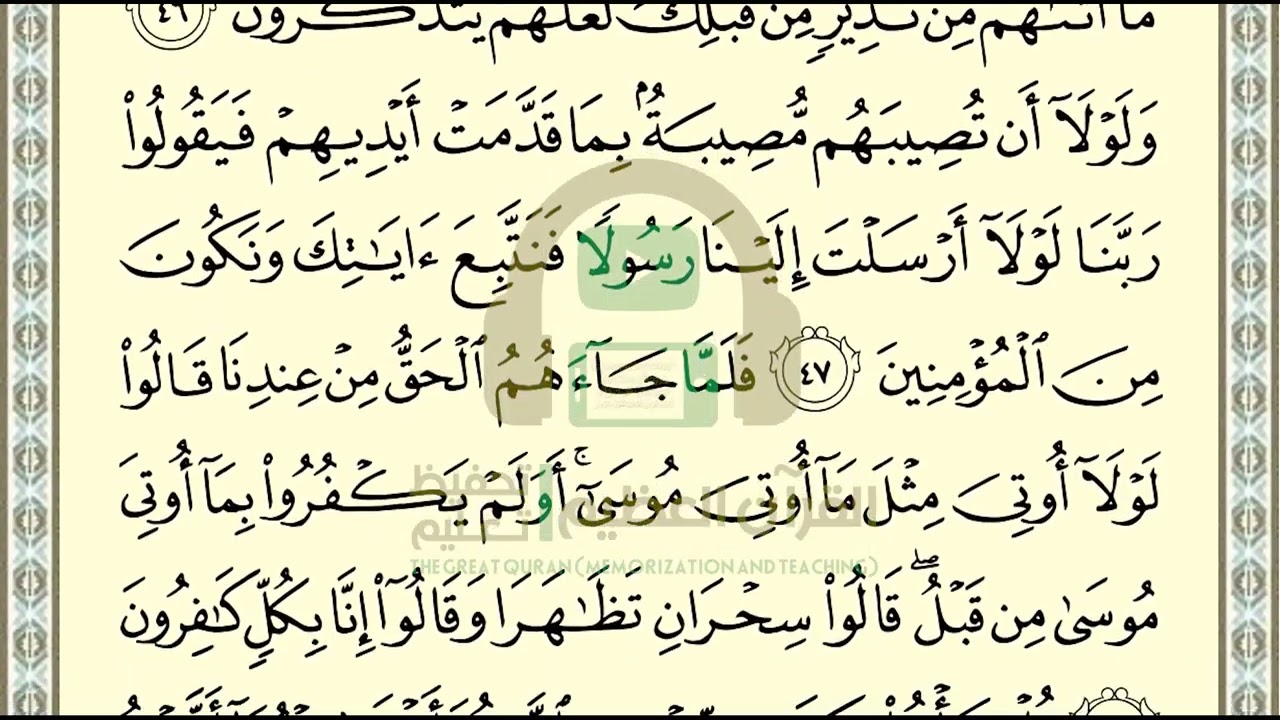 مَّآ أَتَىٰهُم مِّن نَّذِيرٍ مِّن قَبْلِكَ لَعَلَّهُمْ يَتَذَكَّرُونَ ٤٦
وَلَوْلَآ أَن تُصِيبَهُم مُّصِيبَةٌۢ بِمَا قَدَّمَتْ أَيْدِيهِمْ فَيَقُولُوا۟
رَبَّنَا لَوْلَآ أَرْسَلْتَ إِلَيْنَا رَسُولًا فَنَتَّبِعَ ءَايَٰتِكَ وَنَكُونَ
مِنَ ٱلْمُؤْمِنِينَ ٤٧ فَلَمَّا جَآءَهُمُ ٱلْحَقُّ مِنْ عِندِنَا قَالُوا۟
لَوْلَآ أُوتِىَ مِثْلَ مَآ أُوتِىَ مُوسَىٰٓ ۚ أَوَلَمْ يَكْفُرُوا۟ بِمَآ أُوتِىَ
القرآن العظيم تحفيظ تعليم
THE GREAT QURAN (MEMORIZATION AND TEACHING)
مُوسَىٰ مِن قَبْلُ ۖ قَالُوا۟ سِحْرَانِ تَظَٰهَرَا وَقَالُوٓا۟ إِنَّا بِكُلٍّ كَٰفِرُونَ